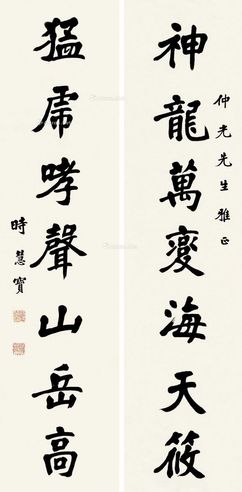 仲光先生雅正
神龍萬變海天筱
猛虎哮聲山岳高
時慧寶